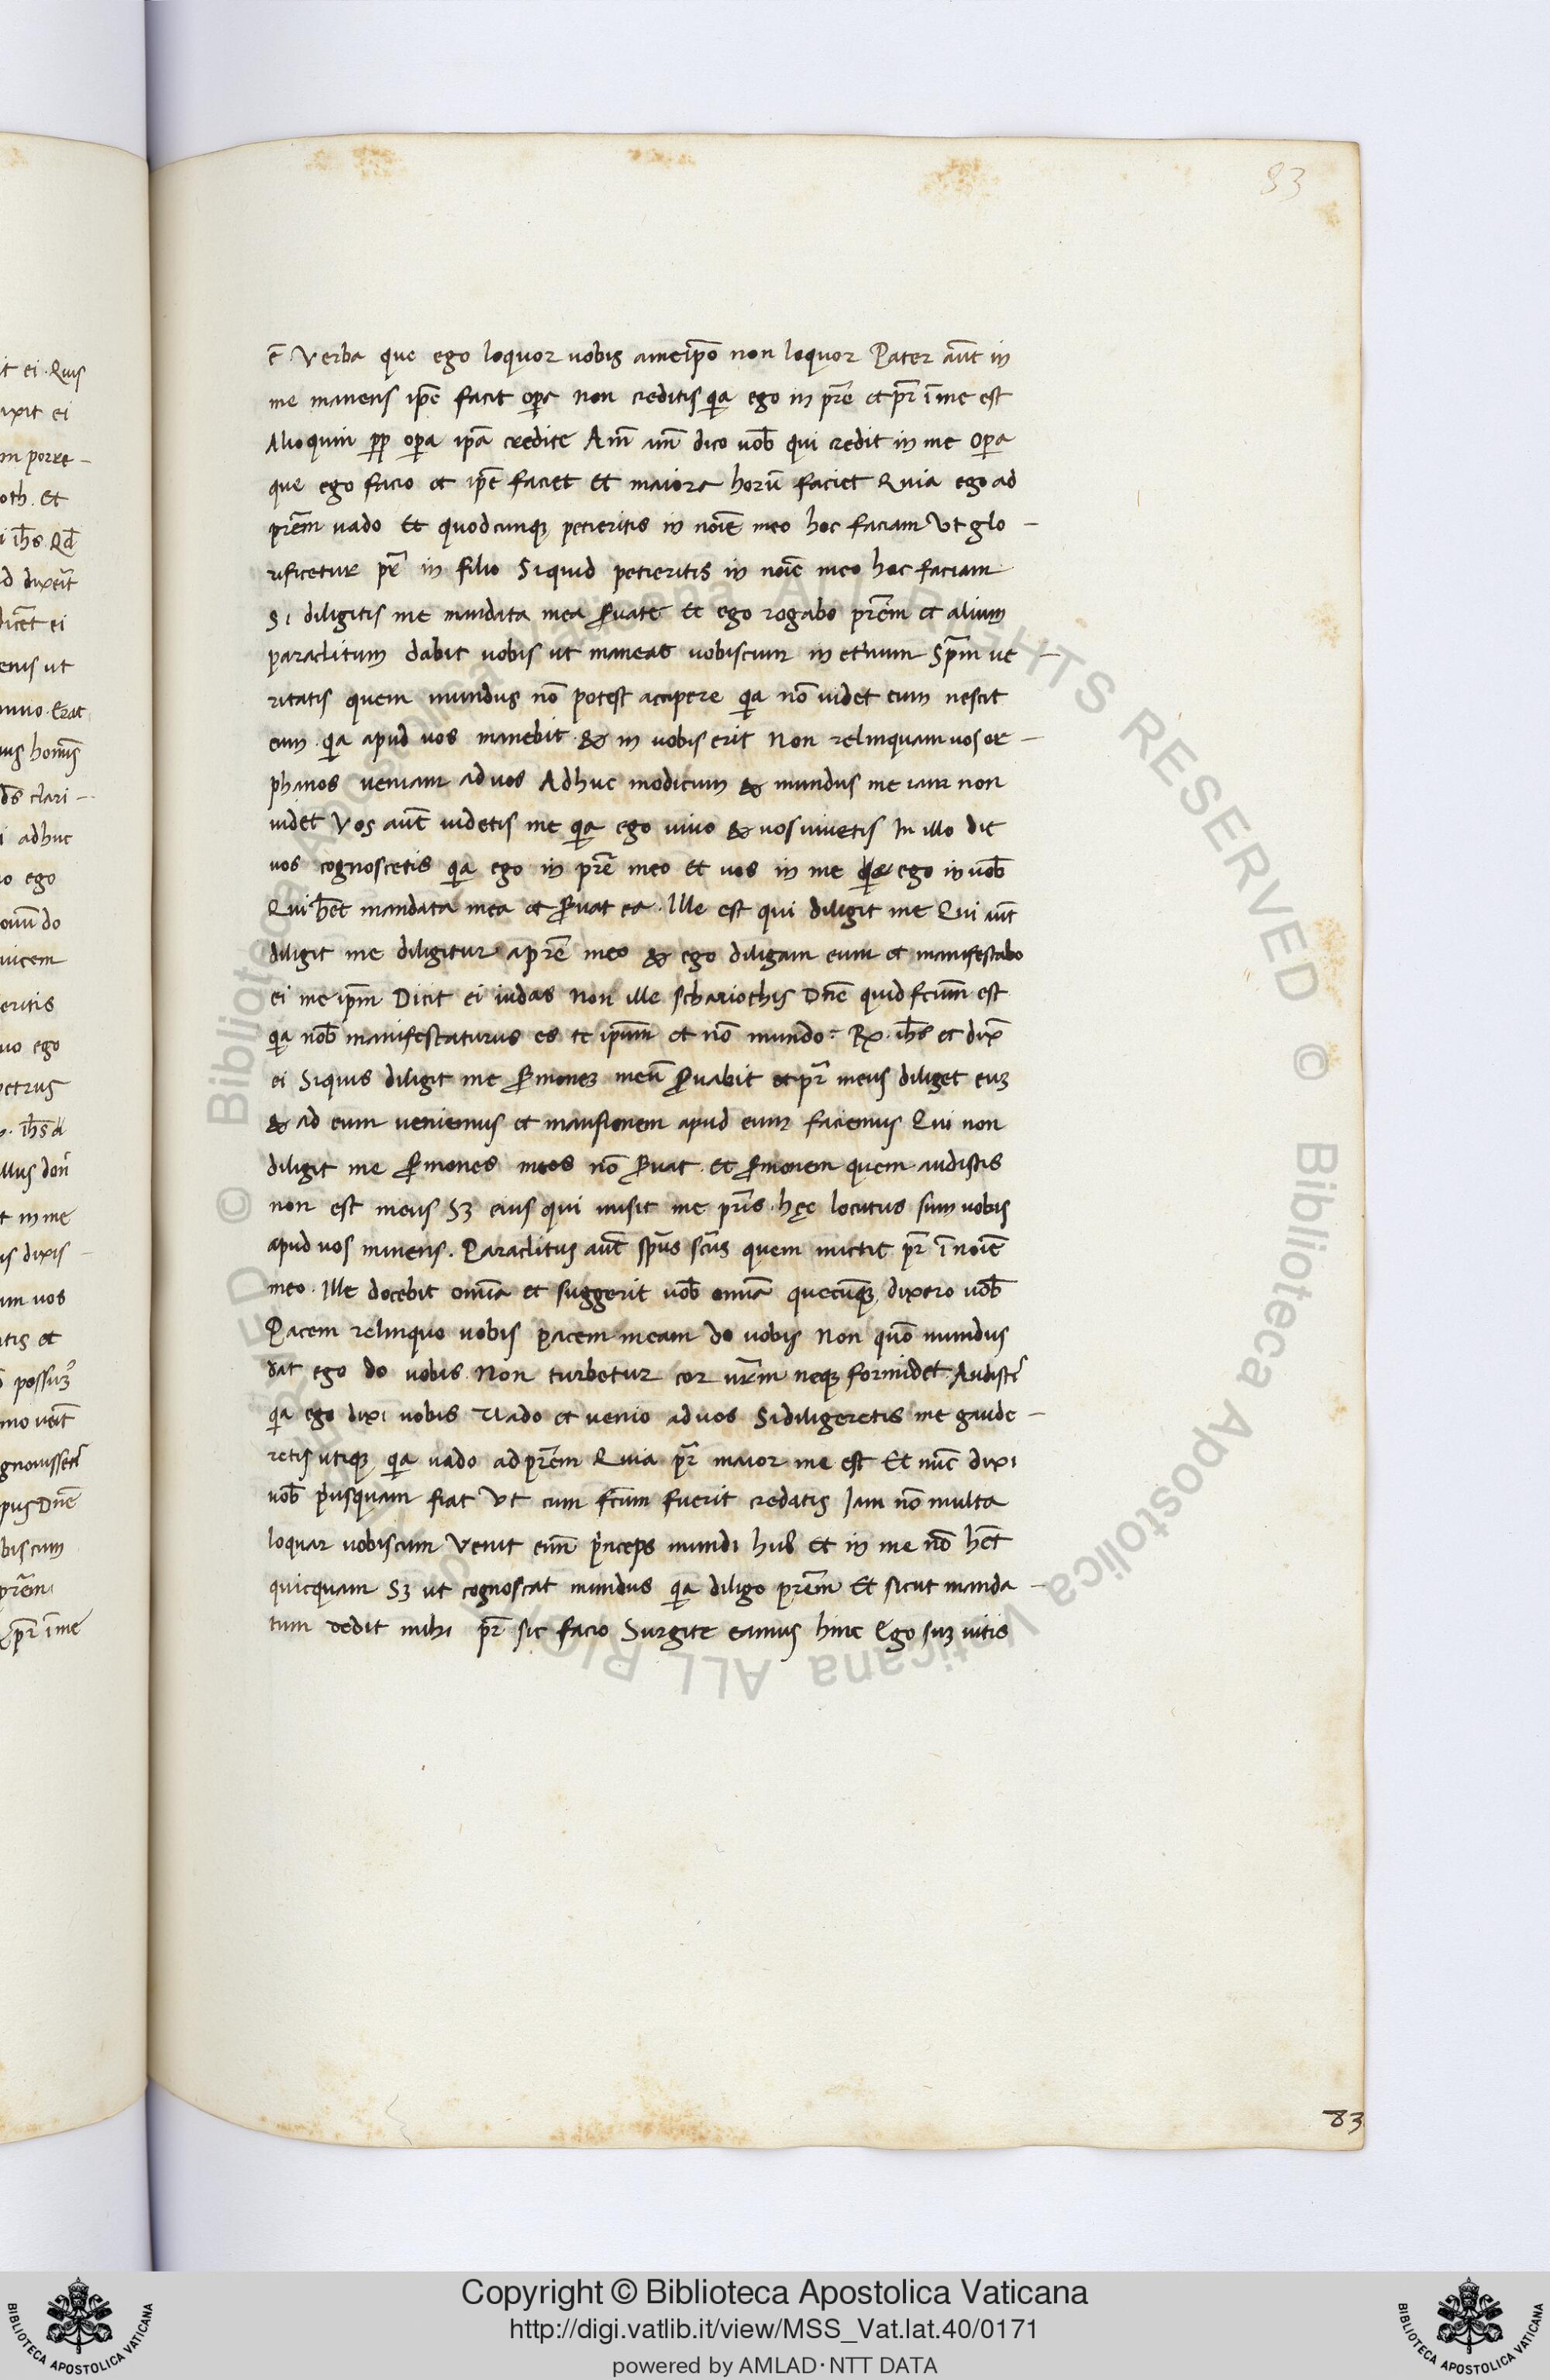 83
ē Verba que ego loquor uobis ameip̄o non loquor Pater aūt in
me manens ip̄e facit oꝑa non creditis qꝛa ego in pr̄e et pr̄ ī me est
Alioquin pp̄ oꝑa ip̄a credite Am̄ am̄ dico uob̄ qui credit in me oꝑa
que ego facio et ip̄e faciet Et maiora horū faciet Quia ego ad
pr̄em uado Et quodcunqꝫ petieritis in noīe meo hoc faciam Vt glo-
rificetur pr̄ in filio Siquid petieritis in noīe meo hoc faciam
Si diligitis me mandata mea ẜuate Et ego rogabo pr̄em et alium
paraclitum dabit uobis ut maneat uobiscum in et'num Spm̄ ue-
ritatis quem mundus nō potest accipere qꝛa nō uidet eum nescit
eum qꝛa apud uos manebit & in uobis erit Non relinquam uos or-
phanos ueniam ad uos Adhuc modicum & mundus me iam non
uidet Vos aūt uidetis me qꝛa ego uiuo & uos uiuetis In illo die
uos cognoscetis qꝛa ego in pr̄e meo Et uos in me ego in uob̄
Qui h̄et mandata mea et ẜuat ea. Ille est qui diligit me Qui aūt
diligit me diligitur a pr̄e meo & ego diligam eum et manifestabo
ei me ip̄m Dicit ei iudas non ille schariothis Dn̄e quid fc̄um est
qꝛa nob̄ manifestaturus es te ipsum et nō mundo: R. ih̄s et dix̄
ei Siquis diligit me ẜmoneꝫ meū ẜuabit et pr̄ meus diliget euꝫ
& ad eum ueniemus et mansionem apud eum faciemus Qui non
diligit me ẜmones meos nō ẜuat. Et ẜmonem quem audistis
non est meus Sꝫ eius qui misit me pr̄is. hęc locutus sum uobis
apud uos manens. Paraclitus aūt sp̄us sc̄us quem mictit pr̄ ī noīe
meo. Ille docebit omīa et suggerit uob̄ omīa quecūqꝫ dixero uob̄
Pacem relinquo uobis pacem meam do uobis Non quō mundus
dat ego do uobis. Non turbetur cor ur̄m neqꝫ formidet. Audist'
qꝛa ego dixi uobis Uado et uenio ad uos Si diligeretis me gaude-
retis utiqꝫ qꝛa uado ad pr̄em Quia pr̄ maior me est Et nūc dixi
uob̄ pͥusquam fiat Vt cum fc̄um fuerit credatis Iam nō multa
loquar uobiscum Venit enī pͥnceps mundi huiꝰ Et in me nō h̄et
quicquam Sꝫ ut cognoscat mundus qꝛa diligo pr̄em Et sicut manda-
tum dedit mihi pr̄ sic facio Surgite eamus hinc Ego suꝫ uitis
83
Copyright © Biblioteca Apostolica Vaticana
http://digi.vatlib.it/view/MSS_Vat.lat.40/0171
powered by AMLAD·NTT DATA